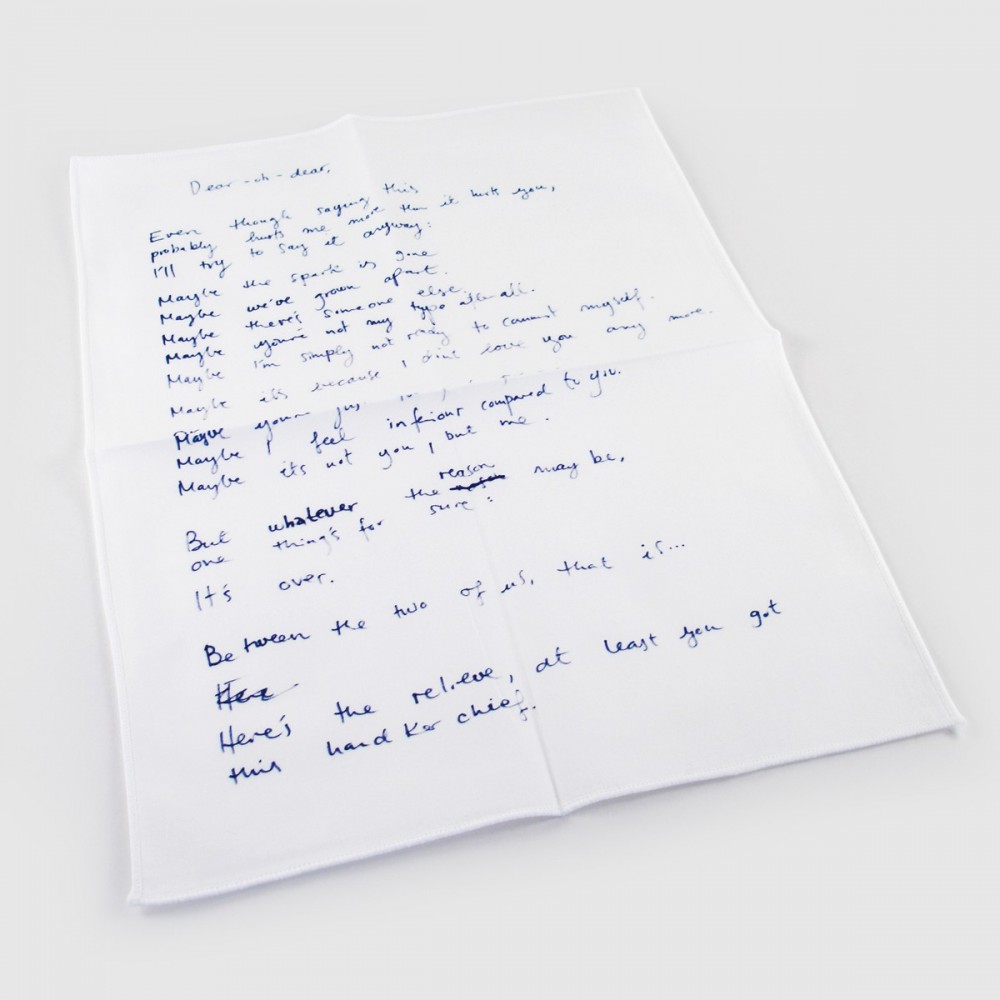 Dear-oh-dear,
Even though saying this
probably hurts me more than it hurts you,
I'll try to say it anyway:
Maybe the spark is gone
Maybe we've grown apart.
Maybe there's someone else.
Maybe you're not my type after all.
Maybe I'm simply not ready to commit myself.
Maybe it's because I don't love you any more.
Maybe you're just
Maybe I feel inferiour compared to you.
Maybe it's not you, but me.
But whatever the reason may be,
one thing's for sure:
It's over.
Between the two of us, that is...
Here
Here's the relieve, at least you got
this handkerchief.